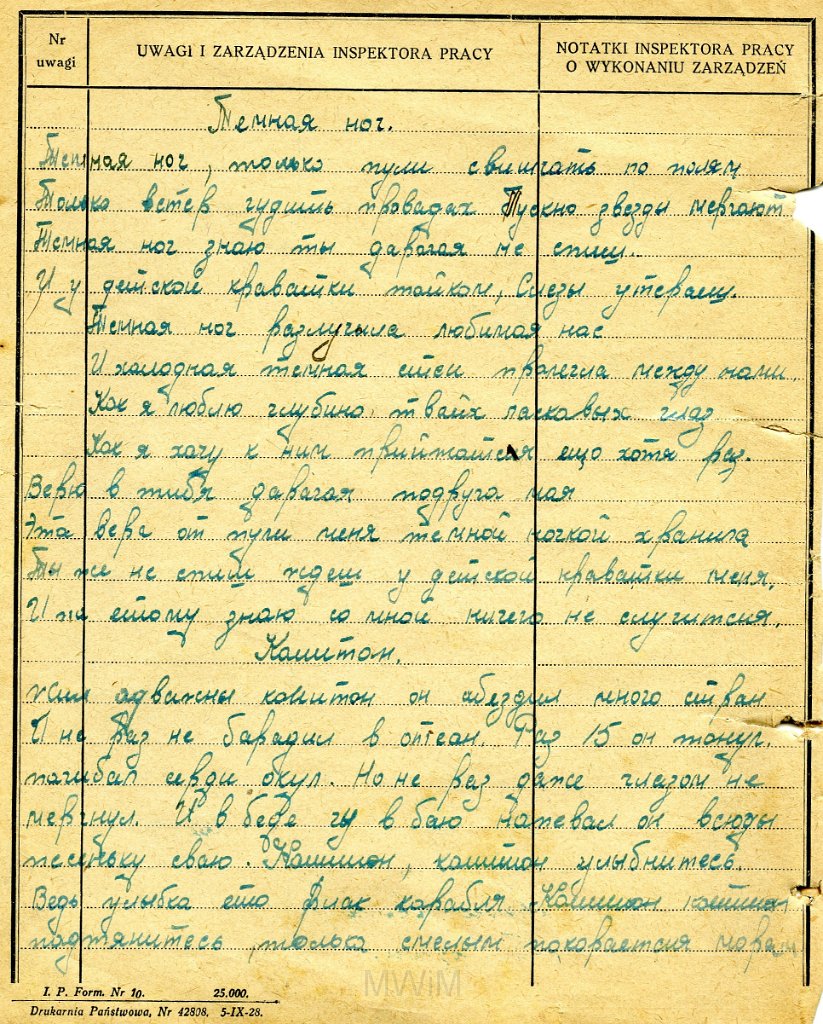 Nr uwagi
UWAGI I ZARZĄDZENIA INSPEKTORA PRACY
NOTATKI INSPEKTORA PRACY
O WYKONANIU ZARZĄDZEŃ
Темная ноч.
Темная ноч, только пули свищать по полям
Только ветер гудить правадах Тускно звезды мергают
Темная ноч знаю ты дарагая не спиш.
И у детской краватки тайком, Слезы утераеш.
Темная ноч разлучыла любимая нас
И халодная темная степ пралегла между нами.
Как я люблю глубино твайх ласкавых глаз
Как я хачу к ним прийтайсая ещо хотя раз.
Верю в тибя дарагая подруга мая
Эта вера от пули меня темной ночкой хранила
Ты же не спиш ждеш у детской краватки меня.
И па етому знаю со мной ничего не случится.
Капитон.
Жил адважны капитон он абездил много стран
И не раз не барадил в океан. Раз 15 он тонул.
пагибал серди окул. Но не раз даже глазом не
мергнул. И в беде и в баю напевал он всюды
песеньку сваю. Капитон, капитон улыбнитесь.
Ведь улыбка ето флак карабля Капитон капитон
падтянитесь, только смелым пакораетсия моря
MWiM
I. P. Form. Nr 10. 25.000.
Drukarnia Państwowa, Nr 42808. 5-IX-28.